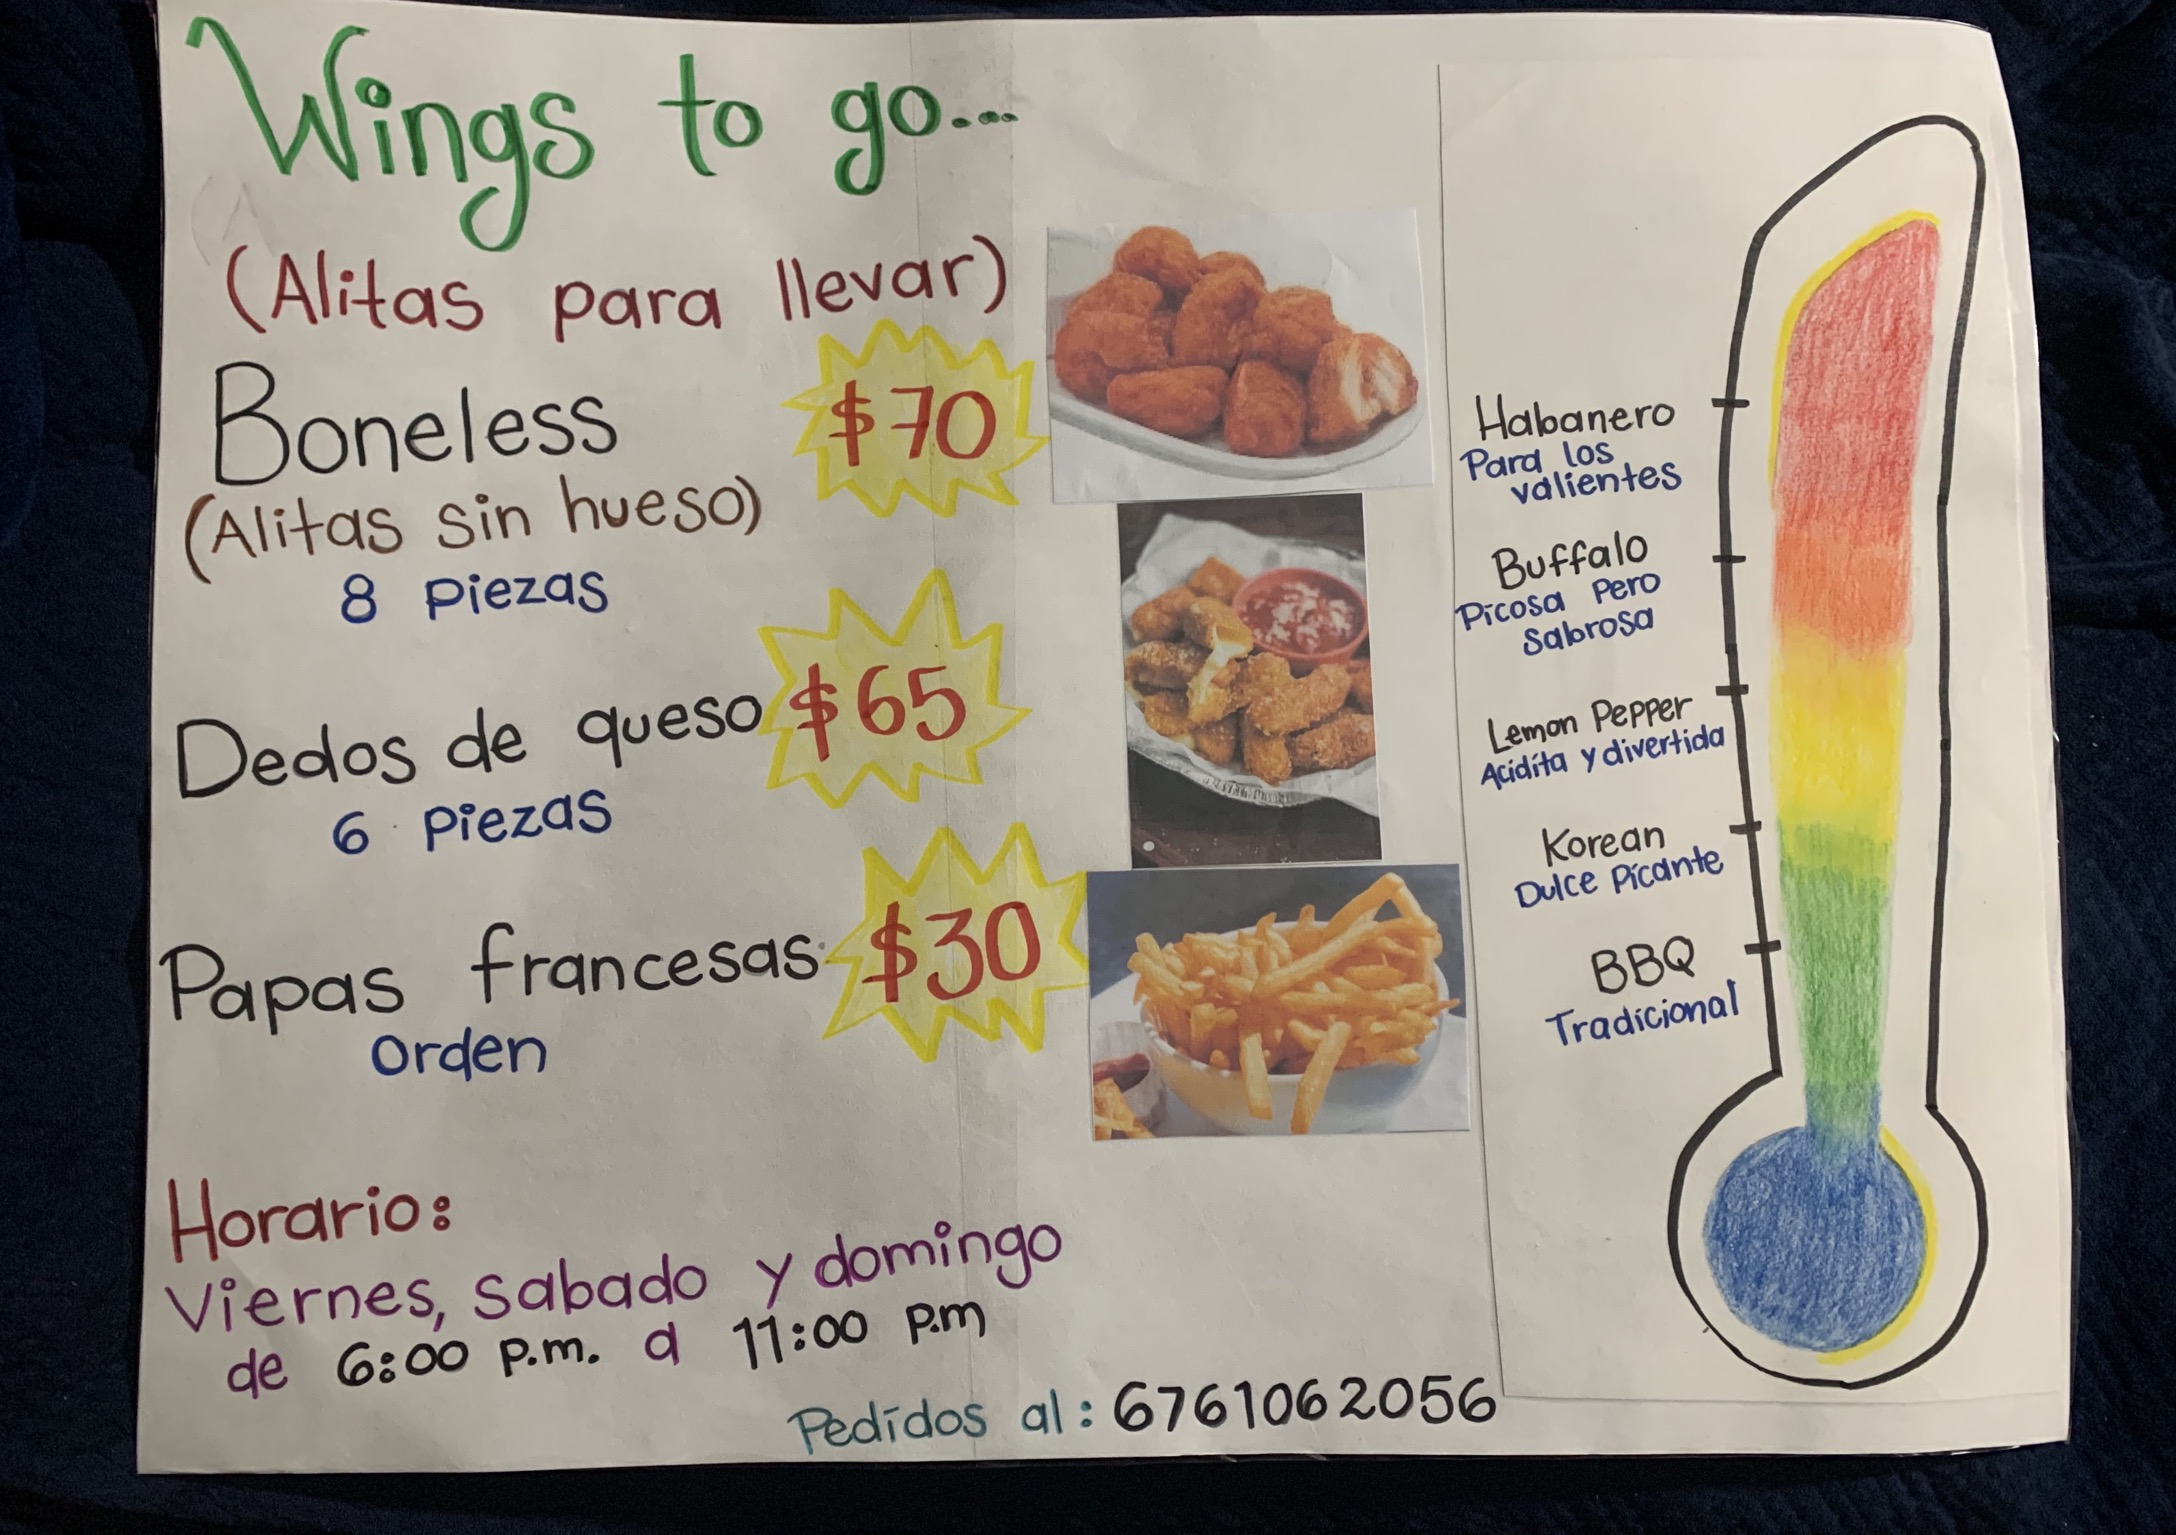 Wings to go....
(Alitas para llevar)
Boneless $70
(Alitas sin hueso)
8 piezas
Dedos de queso $65
6 piezas
Papas francesas $30
orden
Horario:
Viernes, sabado y domingo
de 6:00 p.m. a 11:00 p.m
Pedidos al: 6761062056
Habanero
Para los
valientes
Buffalo
Picosa pero
sabrosa
Lemon Pepper
Acidita y divertida
Korean
Dulce Picante
BBQ
Tradicional